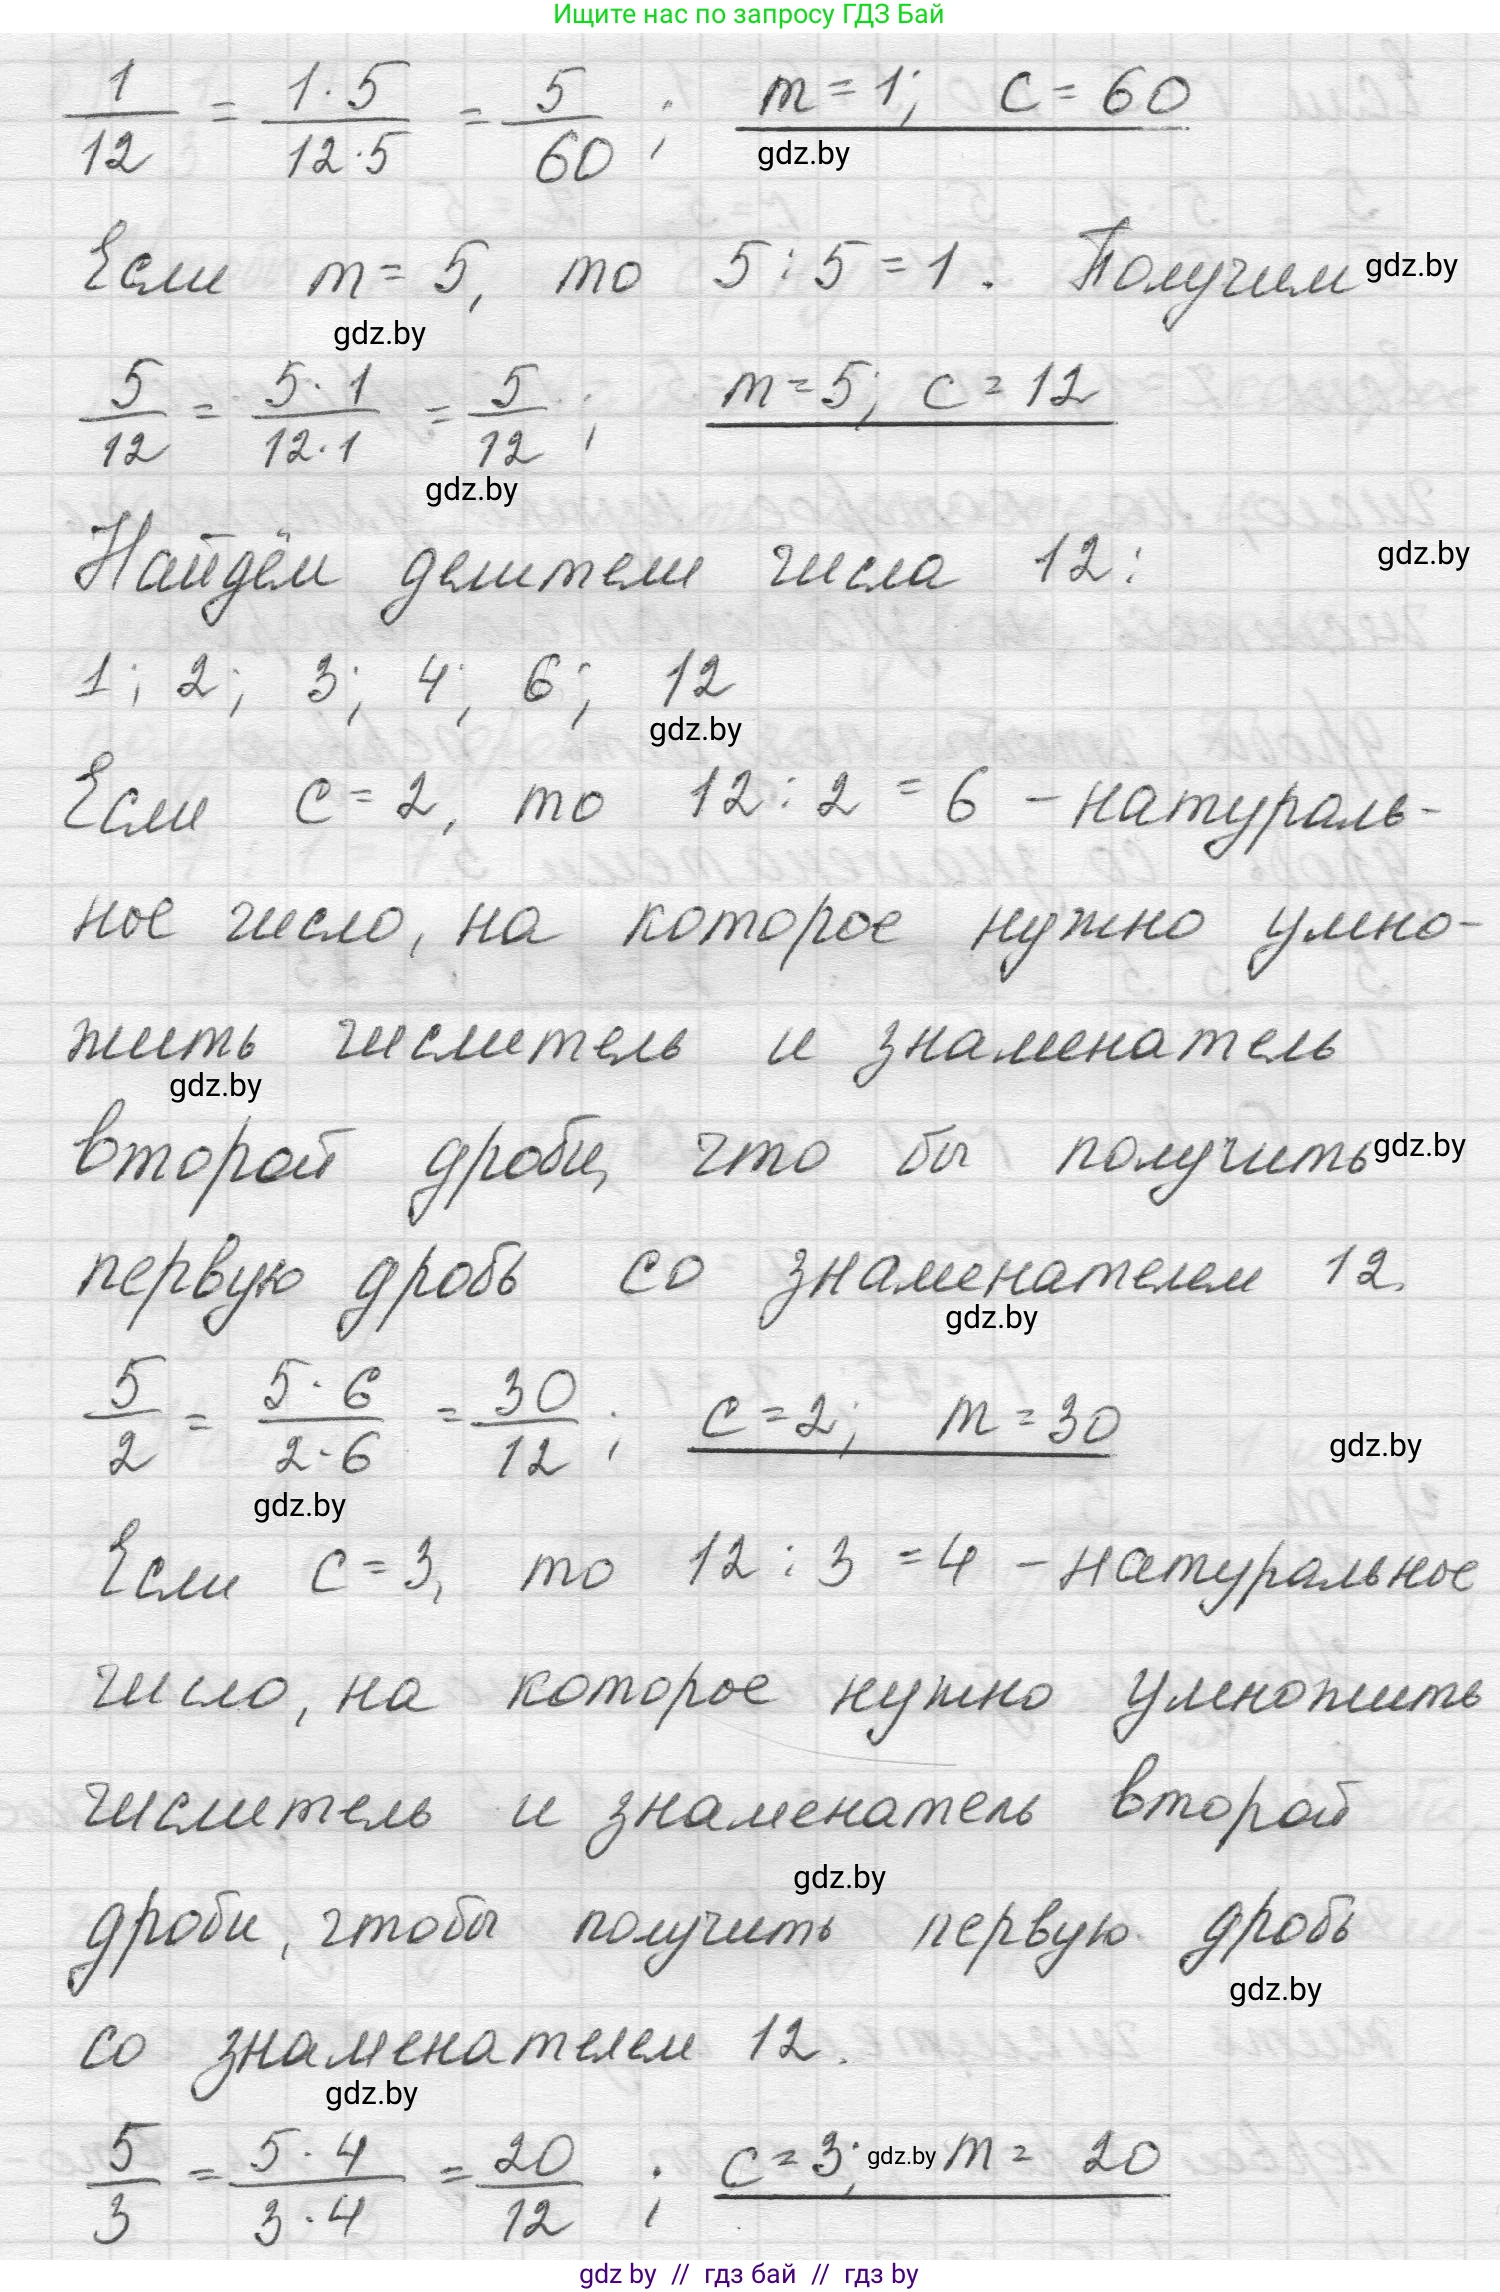 Ищите нас по запросу ГДЗ Бай
1/12 = 1·5/12·5 = 5/60 ; m = 1; c = 60
gdz.by
Если m = 5, то 5 : 5 = 1. Получим gdz.by
gdz.by
5/12 = 5·1/12·1 = 5/12 ; m = 5; c = 12
gdz.by
Найдём делители числа 12: gdz.by
1; 2; 3; 4; 6; 12
gdz.by
Если c = 2, то 12 : 2 = 6 - натураль-
ное число, на которое нужно умно-
жить числитель и знаменатель
gdz.by
второй дроби, что бы получить gdz.by
первую дробь со знаменателем 12.
gdz.by
5/2 = 5·6/2·6 = 30/12 ; c = 2; m = 30 gdz.by
gdz.by
Если c = 3, то 12 : 3 = 4 - натуральное
число, на которое нужно умножить
числитель и знаменатель второй
gdz.by
дроби, чтобы получить первую дробь
gdz.by
со знаменателем 12.
gdz.by
5/3 = 5·4/3·4 = 20/12 ; c = 3; gdz.by m = 20
gdz.by // гдз бай // гдз by